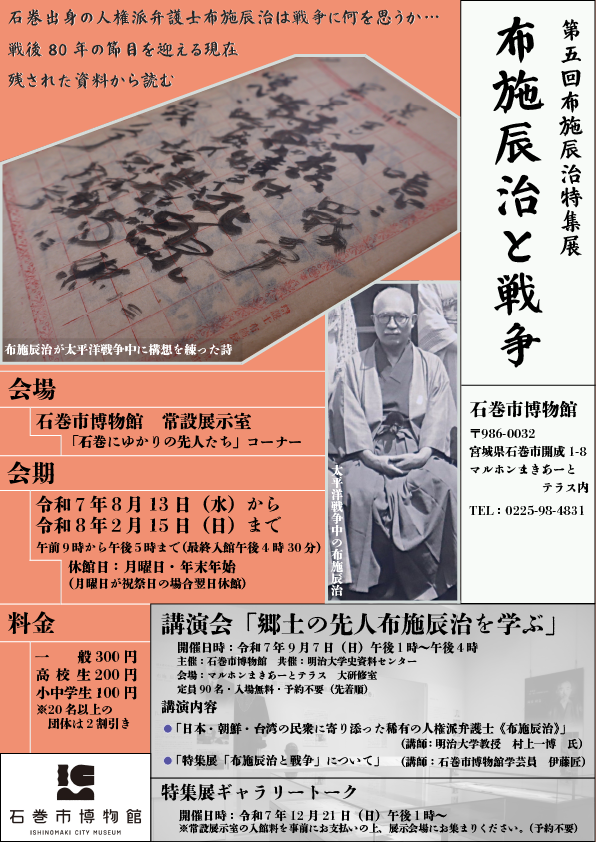 石巻出身の人権派弁護士布施辰治は戦争に何を思うか…
戦後 80 年の節目を迎える現在
残された資料から読む
第五回布施辰治特集展
布施辰治と戦争
布施辰治が太平洋戦争中に構想を練った詩
太平洋戦争中の布施辰治
石巻市博物館
〒986-0032
宮城県石巻市開成 1-8
マルホンまきあーと
テラス内
TEL：0225-98-4831
会場
石巻市博物館　常設展示室
「石巻にゆかりの先人たち」コーナー
会期
令和７年８月 13 日（水）から
令和８年２月 15 日（日）まで
午前９時から午後５時まで（最終入館午後４時 30 分）
休館日：月曜日・年末年始
（月曜日が祝祭日の場合翌日休館）
料金
一　　般 300 円
高 校 生 200 円
小中学生 100 円
※20 名以上の
団体は２割引き
講演会「郷土の先人布施辰治を学ぶ」
開催日時：令和７年９月７日（日）午後１時～午後４時
主催：石巻市博物館　共催：明治大学史資料センター
会場：マルホンまきあーとテラス　大研修室
定員 90 名・入場無料・予約不要（先着順）
講演内容
●「日本・朝鮮・台湾の民衆に寄り添った稀有の人権派弁護士《布施辰治》」
（講師：明治大学教授　村上一博　氏）
●「特集展「布施辰治と戦争」について」　（講師：石巻市博物館学芸員　伊藤匠）
特集展ギャラリートーク
開催日時：令和７年 12 月 21 日（日）午後１時～
※常設展示室の入館料を事前にお支払いの上、展示会場にお集まりください。（予約不要）
石巻市博物館
ISHINOMAKI CITY MUSEUM